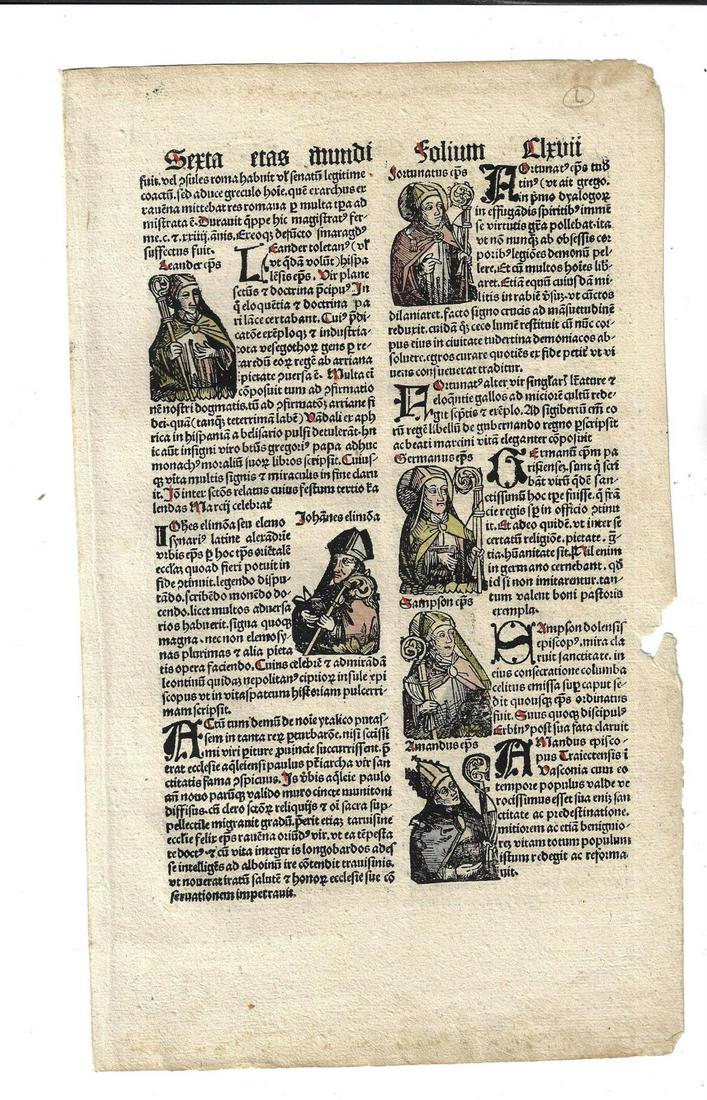 Sexta etas mundi Folium Clxvii
L
fuit. vel ꝯsules roma habuit vł senatū legitime
coactū. sed aduce greculo hoīe. quē exarchus ex
rauēna mittebat res romana ꝑ multa tꝑa ad
mistrata ē. Durauit qͥppe hic magistratꝰ fer-
me .c. ⁊ .xxiiij. ānis. Ereoqꝫ defūcto smaragdꝰ
suffectus fuit.
Leander eps̄
LEander toletanꝰ (vł
vt qͥdā volūt) hispa
lēsis eps̄. Vir plane
sctūs ⁊ doctrina p̄cipuꝰ. In
qͣ eloquētia ⁊ doctrina pa
ri lāce certabant. Cuiꝰ p̄di-
catōe exēploqꝫ ⁊ industria
tota vesegothoꝝ gens ⁊ re-
caredū eoꝝ regē ab arriana
īpietate ꝯuersa ē. Multa eī
cōposuit tum ad ꝯfirmatio
nē nostri dogmatis. tū ad ꝯfirmatoꝝ arriane fi
dei. qua (tanqͣ teterrimā labē) Vādali ex aph
rica in hispaniā a belisario pulsi detulerāt. hn̄
ic aūt insigni viro btūs gregoriꝰ papa adhuc
monachꝰ moraliū suoꝝ libros scripsit. Cuius-
qꝫ vita multis signis ⁊ miraculis in fine claru
it. Is inter sctōs relatus cuius festum tertio ka
lendas Marcij celebrat᷑
Johānes elimōa
IOhēs elimōa seu elemo
synariꝰ latine alexādrīe
vrbis eps̄ ꝑ hoc tp̄s oriētalē
ecclīaꝫ quoad fieri potuit in
fide ꝯtinuit. legendo dispu-
tādo. scribēdo monēdo do-
cendo. licet multos aduersa
rios habuerit. signa quoqꝫ
magna. nec non elemosy-
nas plurimas ⁊ alia pieta
tis opera faciendo. Cuius celebrē ⁊ admirādā
leontinū quidaꝫ nepolitanꝰ ciprioꝝ insule epi
scopus vt in vitaspatrum historiam pulcerri
mam scripsit.
ACtū tum demū de noīe ytalico putas-
sem in tanta reꝝ ꝑturbatōe. nisi sctissi
mi viri ꝑiture ꝓuincie succurrissent. ꝑ
erat ecclesie aqͥleiensi paulus pr̄iarcha vir san
ctitatis fama ꝯspicuus. Is vrbis aqͥleie paulo
an̄ nouo paruqꝫ valido muro cincte munitoni
diffisus. cū clero sctōꝝ reliquijs ⁊ oī sacra sup-
pellectile migrauit gradū. ꝑerit etiaꝫ taruisine
ecclīe felix eps̄ rauēna oriūdꝰ vir. vt ea tēpesta
te doctꝰ. ⁊ cū vita integer is longobardos ades
se intelligēs ad alboinū ire cōtendit trauisinis.
vt nouerat iratū salutē ⁊ honoꝝ ecclesie sue cō
seruationem impetrauit.
Fortunatus eps̄
FOrtunatꝰ eps̄ tud
tinꝰ (vt ait grego.
in pͥmo dyalogoꝝ
in effugādis spiritibꝰ immē
se virtutis grā pollebat. ita
vt nō nunqͣ ab obsessis cor
poribꝰ legiōes demonū pel-
lere. Et cū multos hoīes lib
aret. Etiā equū cuiusdam mi
litis in rabiē ꝯsuꝫ. vt cūctos
dilaniaret. facto signo crucis ad māsuetudinē
reduxit. cuidā qͦqꝫ ceco lumē restituit cū nūc cor-
pus eius in ciuitate tudertina demoniacos ab-
soluere. egros curare quotiēs ex fide petit᷑ vt vi
uens consueuerat traditur.
FOrtunatꝰ alter vir singłarł lr̄ature ⁊
eloqͣntie gallos ad miciorē cultū rede-
git scp̄tis ⁊ exēplo. Ad sigiberū em̄ eo
rū regē libellū de gubernando regno ꝑscripsit
ac beati marcini vitā eleganter cōposuit
Germanus eps̄
GErmanū ep̄m pa
risensez. sunt qͥ scri
bāt virū qͥdē san-
ctissimū hoc tꝑe fuisse. qͥ frā
cie regis sꝑ in officio ꝯtinu
it. Et adeo quidē. vt inter se
certatū religiōe. pietate. g̃-
tia. hūanitate sit. Nil enim
in germano cernebant. qd̄
id si non imitarentur. tan-
tum valent boni pastoris
exempla.
Sampson eps̄
SAmpson dolensis
episcopꝰ. mira cla
ruit sanctitate. in
eius consecratione columba
celitus emissa suꝑ caput se-
dit quousqꝫ eps̄ ordinatus
fuit. Suus quoqꝫ discipulꝰ
Erbinꝰ post sua fata claruit
Amandus eps̄
AMandus episco-
pus Traiectensis ī
Vasconia cum eo
tempore populus valde ve
rocissimus esset sua eniꝫ san
ctitate ac predestinatione.
mitiorem ac etiā benignio-
reꝫ vitam totum populum
istum redegit ac reforma
uit.